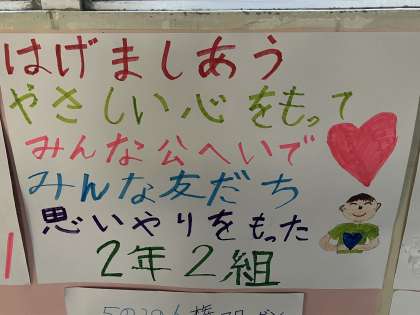 はげましあう
やさしい心をもって
みんな公へいで
みんな友だち
思いやりをもった
2年2組